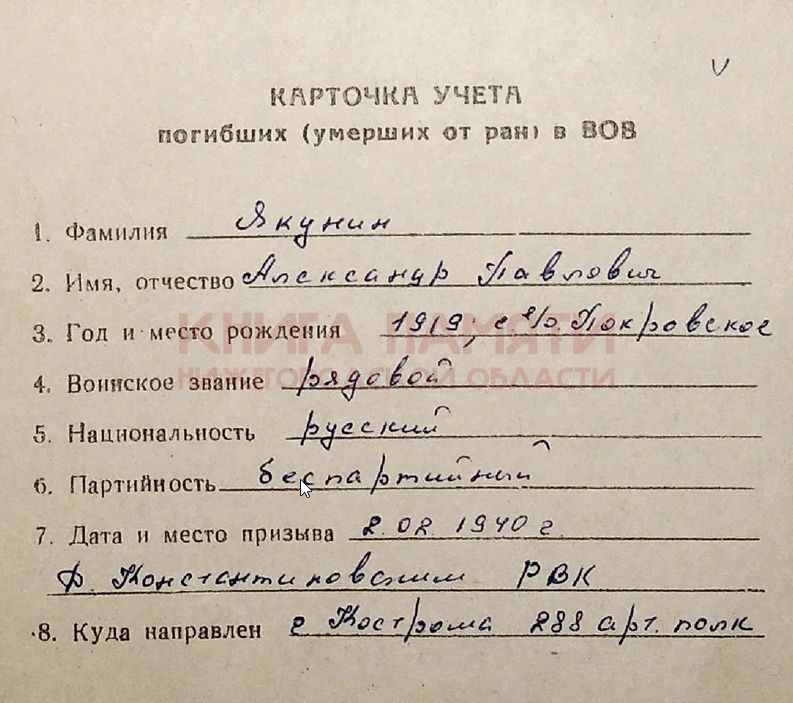 КАРТОЧКА УЧЕТА
погибших (умерших от ран) в ВОВ
1. Фамилия Якунин
2. Имя, отчество Александр Павлович
3. Год и место рождения 1919, Покровское
КНИГА ПАМЯТИ
4. Воинское звание рядовой
НИЖЕГОРОДСКОЙ ОБЛАСТИ
5. Национальность русский
6. Партийность беспартийный
7. Дата и место призыва 2.02 1940 г.
Д. Константиновским РВК
8. Куда направлен г Кострома 288 арт. полк